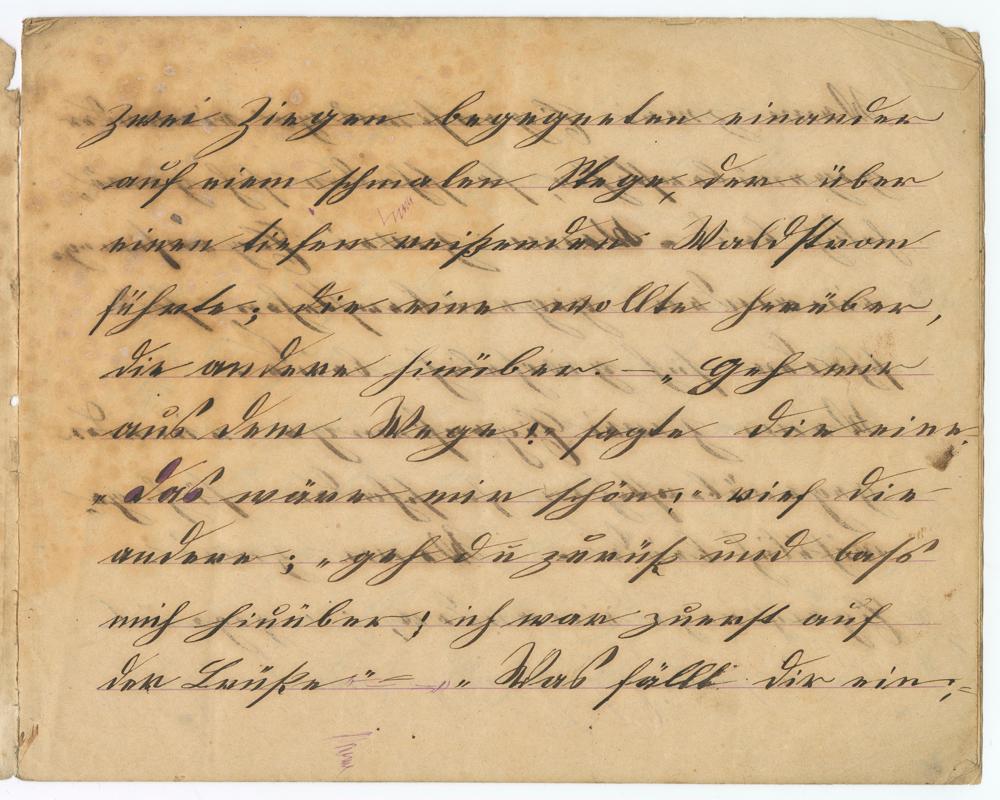 Zwei Ziegen begegneten einander
auf einem schmalen Stege, der über
einen tiefen reißenden Waldstrom
führte; die eine wollte herüber,
die andere hinüber. — „Geh mir
aus dem Wege!“ sagte die eine.
„Das wäre mir schön!“ rief die
andere; „geh du zurück und lass
mich hinüber; ich war zuerst auf
der Brücke“ — „Was fällt dir ein;